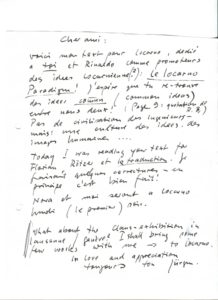 Cher ami:
voici mon text pour Locarno, dédié
à toi et Rinaldo comme promoteurs
des idées Locarniennes: le Locarno
Paradigma! J'espère que tu re-trouve
des idées common (common ideas)
entre nous deux! (Page 9: quotation de
Pas de civilisation des ingénieurs –
mais: une culture des idées, des
images humaines ....
Today I was reading your text for
Florian Rötzer et la traduction. Je
quelques corrections – en
principe c'est bien fait!
Nora et moi seront a Locarno
lundi (le premier) soir.
What about the Claus-exhibition in
Lausanne, I shall bring some
few works with me → to Locarno.
In love and appreciation
toujours ton Jürgen.